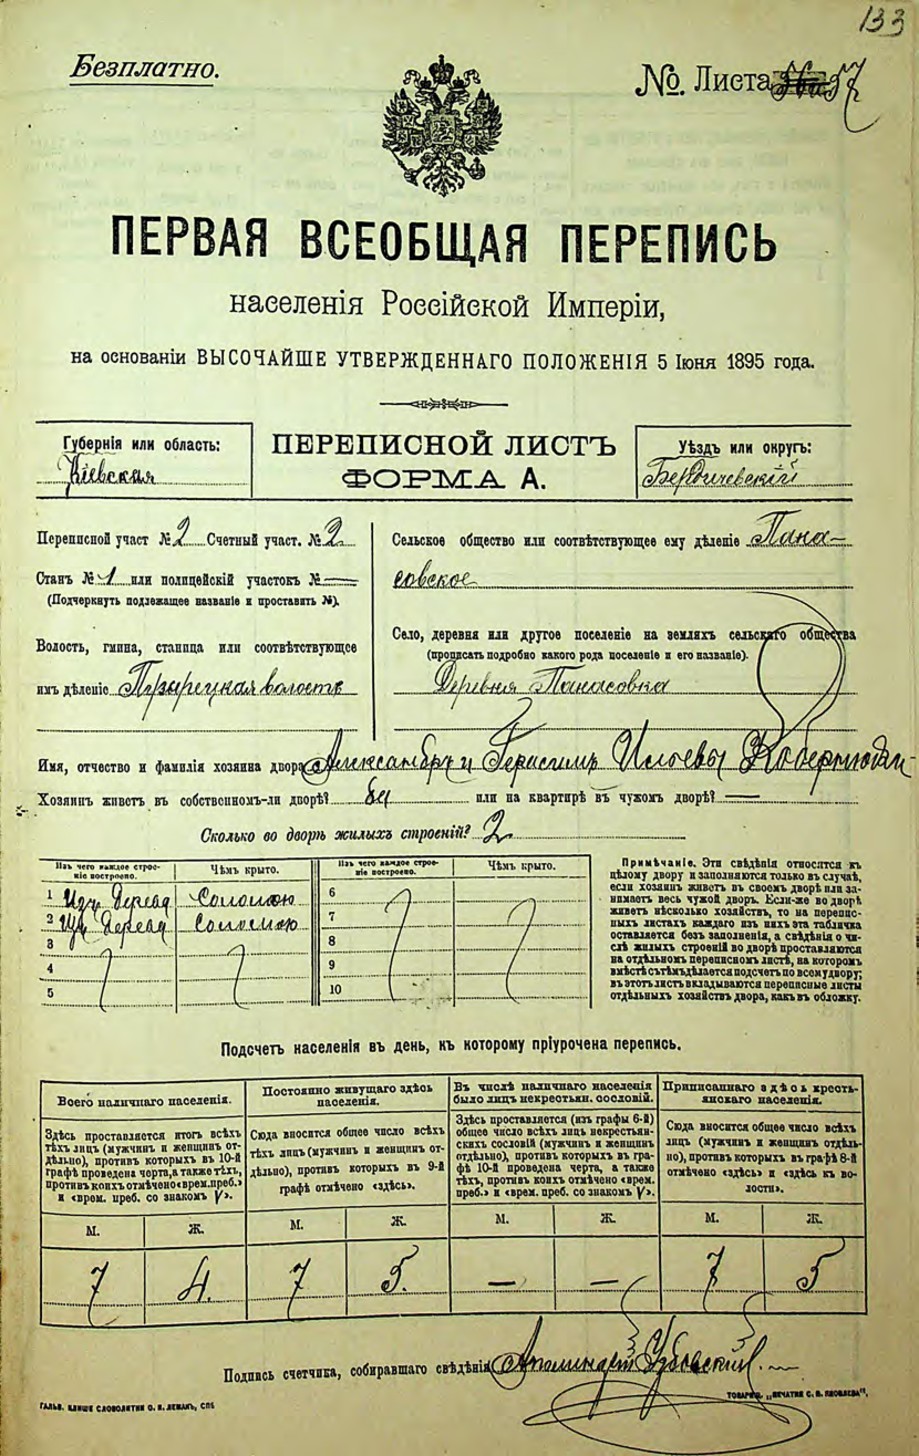 133
Безплатно.
№ Листа 37
ПЕРВАЯ ВСЕОБЩАЯ ПЕРЕПИСЬ
населенія Россійской Имперіи,
на основаніи ВЫСОЧАЙШЕ УТВЕРЖДЕННАГО ПОЛОЖЕНІЯ 5 Іюня 1895 года.
Губернія или область:
Кіевская
ПЕРЕПИСНОЙ ЛИСТЪ
ФОРМА А.
Уѣздъ или округъ:
Бердичевскій
Переписной участ № 2 Счетный участ. № 2
Станъ № 1 или полицейскій участокъ № —
(Подчеркнуть подлежащее названіе и проставить №).
Волость, гмина, станица или соотвѣтствующее
имъ дѣленіе Пузырецкая волость
Сельское общество или соотвѣтствующее ему дѣленіе Пана-
совское
Село, деревня или другое поселеніе на земляхъ сельскаго общества
(прописать подробно какого рода поселеніе и его названіе).
Деревня Панасовка
Имя, отчество и фамилія хозяина двора Александръ и Герасимъ
Хозяинъ живетъ въ собственномъ-ли дворѣ? или на квартирѣ въ чужомъ дворѣ? —
Сколько во дворѣ жилыхъ строеній? 2
Изъ чего каждое строеніе построено.
Чѣмъ крыто.
Изъ чего каждое строеніе построено.
Чѣмъ крыто.
1 Изъ дерева Соломою
2 Изъ дерева Соломою
3
4
5
6
7
8
9
10
Примѣчаніе. Эти свѣдѣнія относятся къ
цѣлому двору и заполняются только въ случаѣ,
если хозяинъ живетъ въ своемъ дворѣ или за-
нимаетъ весь чужой дворъ. Если-же во дворѣ
живетъ нѣсколько хозяйствъ, то на перепис-
ныхъ листахъ каждаго изъ нихъ эта табличка
оставляется безъ заполненія, а свѣдѣнія о чи-
слѣ жилыхъ строеній во дворѣ проставляются
на отдѣльномъ переписномъ листѣ, на которомъ
вмѣстѣ съ тѣмъ дѣлается подсчетъ по всему двору;
въ этотъ листъ вкладываются переписные листы
отдѣльныхъ хозяйствъ двора, какъ въ обложку.
Подсчетъ населенія въ день, къ которому пріурочена перепись.
Всего наличнаго населенія.
Здѣсь проставляется итогъ всѣхъ
тѣхъ лицъ (мужчинъ и женщинъ от-
дѣльно), противъ которыхъ въ 10-й
графѣ проведена черта, а также тѣхъ,
противъ коихъ отмѣчено «врем. преб.»
и «врем. преб. со знакомъ V».
Постоянно живущаго здѣсь
населенія.
Сюда вносится общее число всѣхъ
тѣхъ лицъ (мужчинъ и женщинъ от-
дѣльно), противъ которыхъ въ 9-й
графѣ отмѣчено «здѣсь».
Въ числѣ наличнаго населенія
было лицъ некрестьян. сословій.
Здѣсь проставляется (изъ графы 6-й)
общее число всѣхъ лицъ некрестьян-
скихъ сословій (мужчинъ и женщинъ
отдѣльно), противъ которыхъ въ гра-
фѣ 10-й проведена черта, а также
тѣхъ, противъ коихъ отмѣчено «врем.
преб.» и «врем. преб. со знакомъ V».
Приписаннаго здѣсь кресть-
янскаго населенія.
Сюда вносится общее число всѣхъ
лицъ (мужчинъ и женщинъ отдѣль-
но), противъ которыхъ въ графѣ 8-й
отмѣчено «здѣсь» и «здѣсь къ во-
лости».
М. Ж. М. Ж. М. Ж. М. Ж.
7 4. 7 5. — — 7 5
Подпись счетчика, собиравшаго свѣдѣнія
ГАЛЬВ. КЛИШЕ СЛОВОЛИТНИ О. И. ЛЕМАНЪ, СПБ
ТОВАРИЩ. „ПЕЧАТНЯ С. П. ЯКОВЛЕВА",